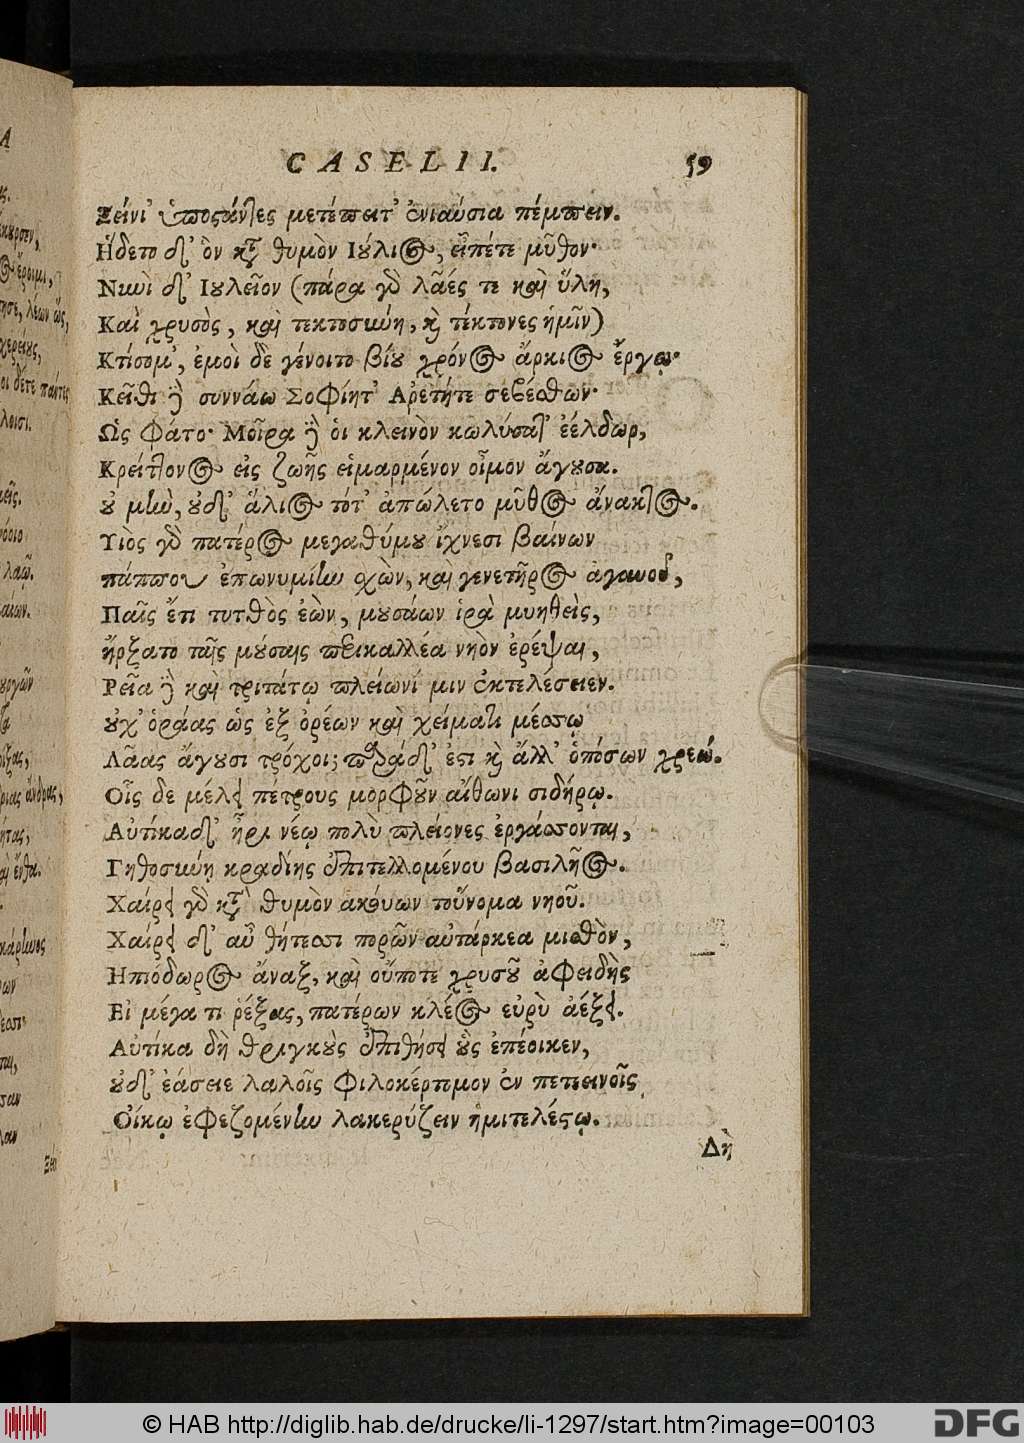 CASELII. 59
Ξείνι' ὑποστάντες μετέπειτ' ἐνιαύσια πέμπειν.
Ηδετο δ' ὃν κτ̀ θυμὸν Ιούλιος, εἶπέ τε μῦθον·
Νιωὶ δ' Ιουλεῖον (πάρα γὸ λᾶές τε καὶ ὕλη,
Καὶ χρυσὸς, καὶ τεκτοσιωύη, κὶ τέκτονες ἡμῖν)
Κτίσομ', ἐμοὶ δὲ γένοιτο βίου χρόνος ἄρκιος ἔργῳ·
Κεῖθι ἢ συννάω Σοφίητ' Αρετήτε σεβέσθων·
Ὣς φάτο· Μοῖρα ἢ οἱ κλεινὸν κωλύσατ' ἐέλδωρ,
Κρείττονος εἰς ζωῆς εἱμαρμένον οἶμον ἄγουσα.
οὐ μιὼ, οὐδ' ἅλιος τότ' ἀπώλετο μῦθος ἄνακτος.
Υιὸς γὸ πατέρος μεγαθύμου ἴχνεσι βαίνων
πάππου ἐπωνυμίιω χὼν, καὶ γενετῆρος ἀγαυοῦ,
Παῖς ἔτι τυτθὸς ἐὼν, μουσάων ἱρὰ μυηθεὶς,
ἤρξατο ταῖς μούσαις περικαλλέα νηὸν ἐρέψαι,
Ρεῖα ἢ καὶ τριτάτῳ πλείωνί μιν ἐκτελέσειεν.
οὐχ' ὁράας ὡς ἐξ ὀρέων καὶ χείματι μέσσῳ
Λᾶας ἄγουσι τρόχοι; πάρα δ' ἐστι κὶ ἄλλ' ὁπόσων χρεώ.
Οἷς δε μέλει πέτρους μορφοῦν αἴθωνι σιδήρῳ.
Αὐτίκα δ' ἦρι νέῳ πολὺ πλείονες ἐργάσονται,
Γηθοσιωύῃ κραδίης ἐπιτελλομένου βασιλῆος.
Χαίρει γὸ κτ̀ θυμὸν ἀκούων τοὔνομα νηοῦ.
Χαίρει δ' αὖ θήτεσσι πορῶν αὐτάρκεα μισθὸν,
Ηπιόδωρος ἄναξ, καὶ οὔποτε χρυσοῦ ἀφειδὴς
Εἰ μέγα τι ῥέξας, πατέρων κλέος εὐρὺ ἀέξει.
Αὐτίκα δὴ θριγκοὺς ἐπιθήσει οὓς ἐπέοικεν,
οὐδ' ἐάσειε λαλοῖς φιλοκέρτομον ἐν πετεινοῖς
Οἴκῳ ἐφεζομένιω λακερύζειν ἡμιτελέστῳ.
Δὴ
© HAB http://diglib.hab.de/drucke/li-1297/start.htm?image=00103
DFG